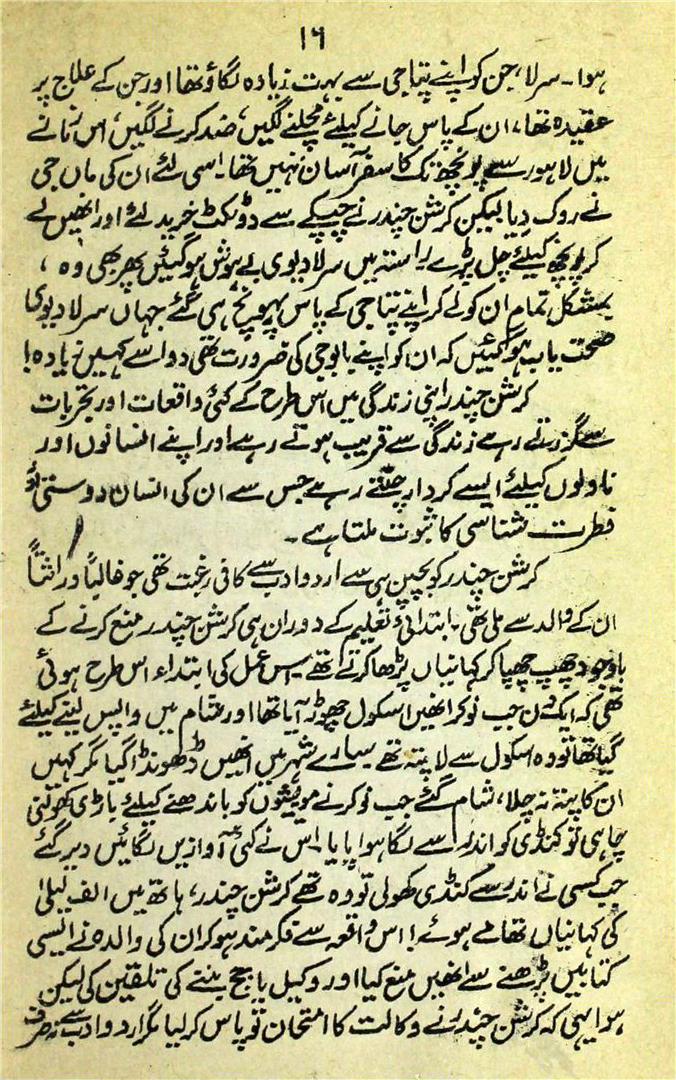 ۱۶
ہوا۔ سرلا، جن کو اپنے پتا جی سے بہت زیادہ لگاؤ تھا اور جن کے علاج پر
عقیدہ تھا، ان کے پاس جانے کیلئے مچلنے لگیں، ضد کرنے لگیں، اس زمانے
میں لاہور سے پونچھ تک کا سفر آسان نہیں تھا۔ اسی لئے ان کی ماں جی
نے روک دیا لیکن کرشن چندر نے چپکے سے دو ٹکٹ خرید لئے اور انھیں لے
کر پونچھ کیلئے چل پڑے راستہ میں سرلا دیوی بے ہوش ہو گیئں پھر بھی وہ ،
بمشکل تمام ان کو لے کر اپنے پتا جی کے پاس پہونچ ہی گئے جہاں سرلا دیوی
صحت یاب ہو گیئں کہ ان کو اپنے بابو جی کی ضرورت تھی دوا سے کہیں زیادہ!
کرشن چندر اپنی زندگی میں اس طرح کے کئی واقعات اور تجربات
سے گزرتے رہے زندگی سے قریب ہوتے رہے اور اپنے افسانوں اور
ناولوں کیلئے ایسے کردار چنتے رہے جس سے ان کی انسان دوستی اور
فطرت شناسی کا ثبوت ملتا ہے۔
کرشن چندر کو بچپن ہی سے اردو ادب سے کافی رغبت تھی جو غالباً وراثتاً
ان کے والد سے ملی تھی۔ ابتدائی تعلیم کے دوران ہی کرشن چندر منع کرنے کے
باوجود چھپ چھپا کر کہانیاں پڑھا کرتے تھے اس عمل کی ابتداء اس طرح ہوئی
تھی کہ ایک دن جب نوکر انھیں اسکول چھوڑ آیا تھا اور شام میں واپس لینے کیلئے
گیا تھا تو وہ اسکول سے لا پتہ تھے سارے شہر میں انھیں ڈھونڈا گیا مگر کہیں
ان کا پتہ نہ چلا، شام گئے جب نوکر نے مویشیوں کو باندھنے کیلئے باڑی کھولنی
چاہی تو کنڈی کو اندر سے لگا ہوا پایا۔ اس نے کئی آوازیں لگائیں دیر گئے
جب کسی نے اندر سے کنڈی کھولی تو وہ تھے کرشن چندر، ہاتھ میں الف لیلیٰ
کی کہانیاں تھامے ہوئے! اس واقعہ سے فکر مند ہو کر ان کی والدہ نے ایسی
کتابیں پڑھنے سے انھیں منع کیا اور وکیل یا جج بننے کی تلقین کی لیکن
ہوا یہی کہ کرشن چندر نے وکالت کا امتحان تو پاس کر لیا مگر اردو ادب سے نہ صرف